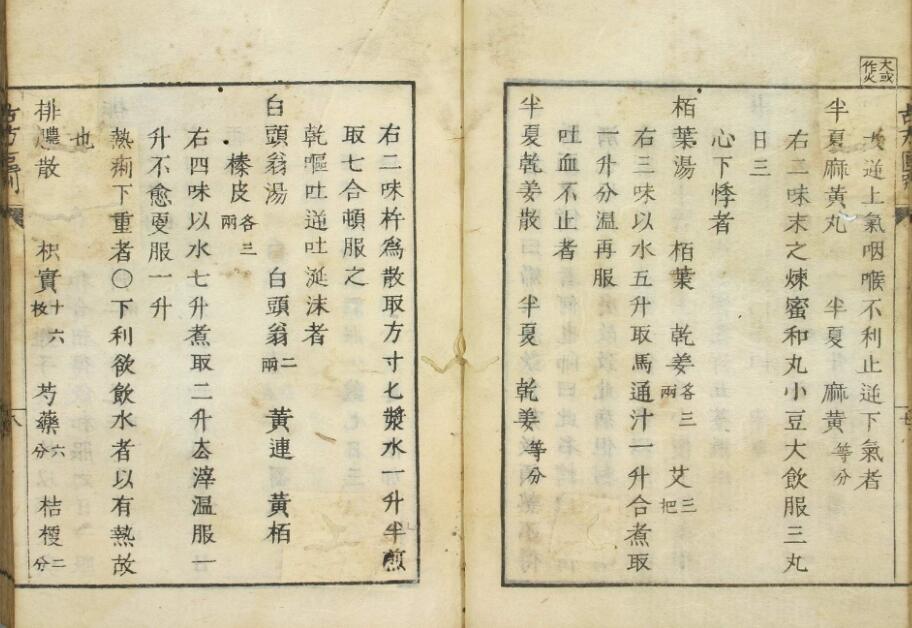 大或作火
大逆上氣咽喉不利止逆下氣者
半夏麻黃丸 半夏 麻黃等分
右二味末之煉蜜和丸小豆大飲服三丸
日三
心下悸者
栢葉湯 栢葉 乾姜各三兩 艾三把
右三味以水五升取馬通汁一升合煮取
一升分温再服
吐血不止者
半夏乾姜散 半夏 乾姜等分
右二味杵爲散取方寸匕漿水一升半煎
取七合頓服之
乾嘔吐逆吐涎沫者
白頭翁湯 白頭翁二兩 黃連 黃栢
榛皮各三兩
右四味以水七升煮取二升去滓温服一
升不愈更服一升
熱痢下重者〇下利欲飲水者以有熱故
也
排膿散 枳實十六枚 芍藥六分 桔梗二分